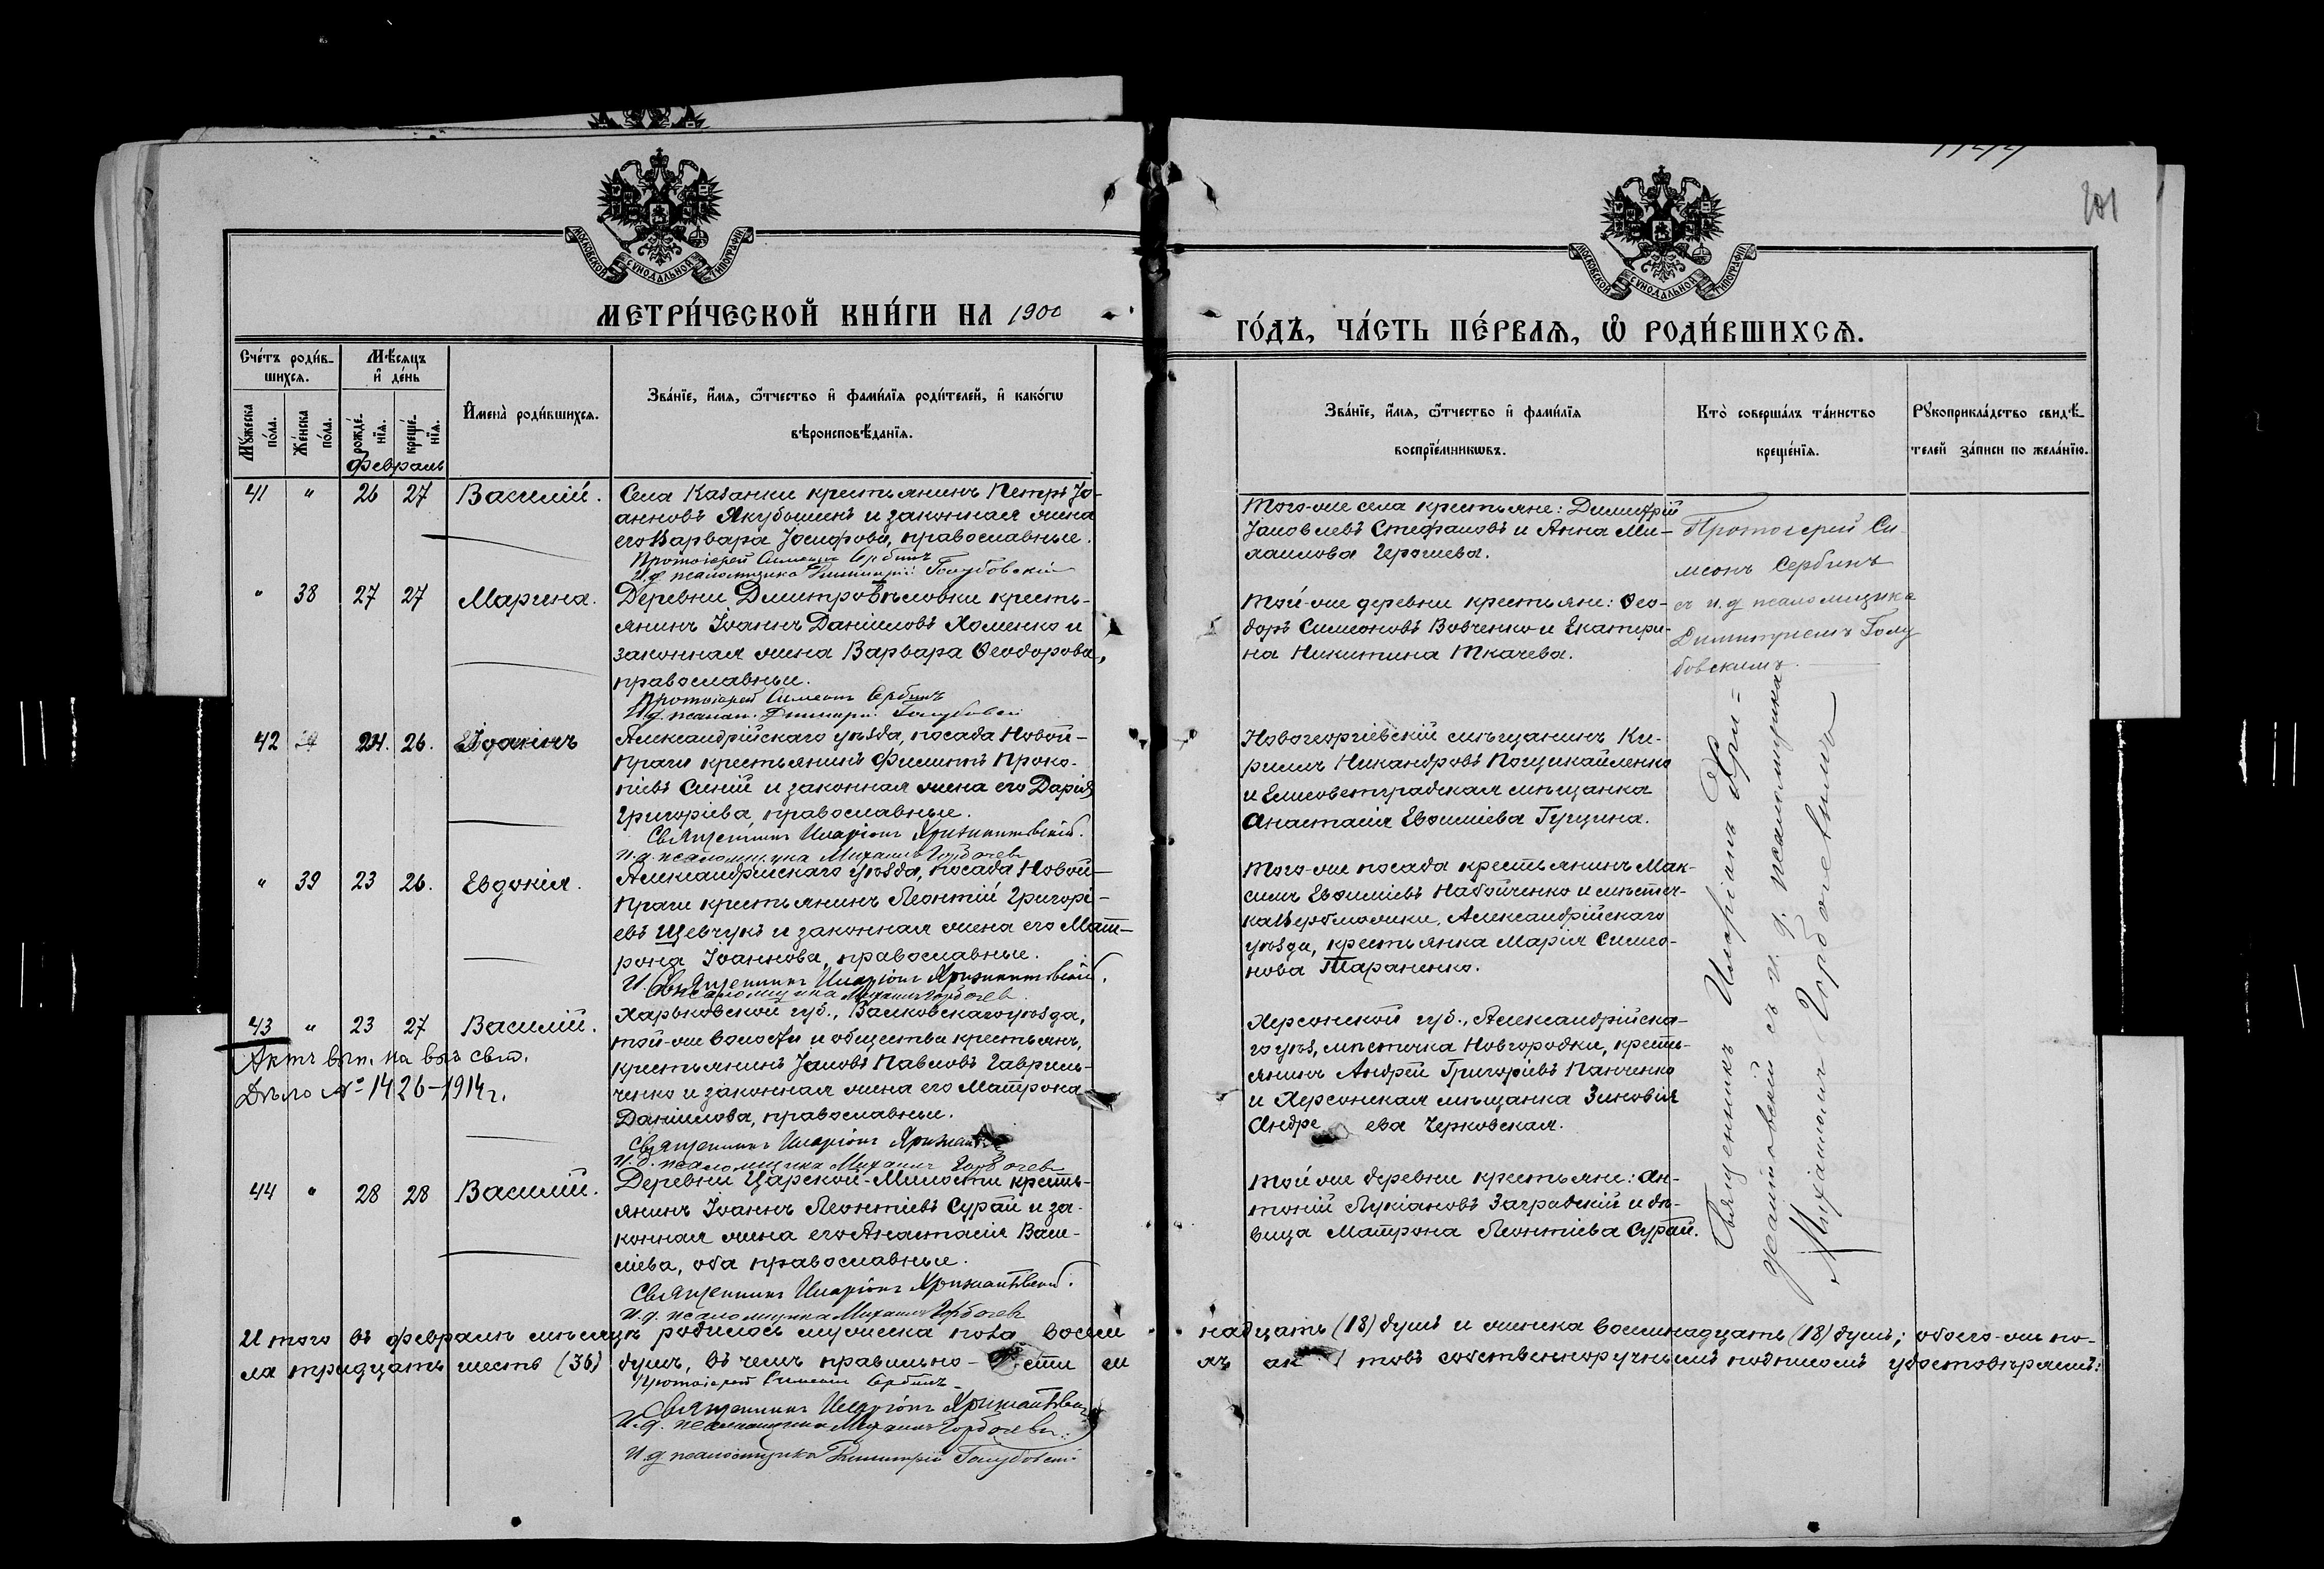 201
МОСКОВСКОЙ СѴНОДАЛЬНОЙ ТИПОГРАФІИ
МОСКОВСКОЙ СѴНОДАЛЬНОЙ ТИПОГРАФІИ
МЕТРИ́ЧЕСКОЙ КНИ́ГИ НА 1900
ГО́ДЪ, ЧА́СТЬ ПЕ́РВАѦ, Ѡ҆ РОДИ́ВШИХСѦ.
Сче́тъ роди́в-
шихсѧ.
Мѣ́сяцъ
и҆ де́нь
Мꙋ́жеска
по́ла.
Же́нска
по́ла.
рожде́-
нїѧ.
креще́-
нїѧ.
Февраль
И҆мена̀ роди́вшихсѧ.
Зва́нїе, и҆́мѧ, ѻ҆́тчество и҆ фами́лїѧ роди́телей, и҆ како́гѡ
вѣроисповѣ́данїѧ.
Зва́нїе, и҆́мѧ, ѻ҆́тчество и҆ фами́лїѧ
воспрїе́мникѡвъ.
Кто̀ соверша́лъ та́инство
креще́нїѧ.
Рꙋкоприкла́дство свидѣ́-
телей за́писи по жела́нїю.
41 " 26 27 Василій.
Села Казанки крестьянинъ Петръ Іо-
анновъ Якубышинъ и законная жена
его Варвара Іосифова, православные.
Протоіерей Симеонъ Сербинъ
И.д. псаломщика Димитрій Голубовскій
Того-же села крестьяне: Димитрій
Іаковлевъ Стефановъ и Анна Ми-
хаилова
Протоіерей Си-
меонъ Сербинъ
съ и.д. псаломщика
Димитріемъ Голу-
бовскимъ.
" 38 27 27 Марина.
Деревни Дмитровъловки кресть-
янинъ Іоаннъ Даніиловъ Хоменко и
законная жена Варвара Ѳеодорова,
православные.
Протоіерей Симеонъ Сербинъ
И.д. псалом. Димитрій Голубовскій
Той-же деревни крестьяне: Ѳео-
доръ Симеоновъ Вовченко и Екатери-
на Никитина Ткачева.
42 24. 26. Іоакимъ
Александрійскаго уѣзда, посада Новой-
Праги крестьянинъ Филиппъ Проко-
піевъ Синій и законная жена его Дарія
Григоріева, православные.
Священникъ Иларіонъ Хрисантовскій.
и.д. псаломщика Михаилъ Горбачевъ
Новогеоргіевскій мѣщанинъ Ки-
риллъ Никандровъ
и Елисоветградская мѣщанка
Анастасія Евѳиміева Гущина.
" 39 23 26. Евдокія.
Александрійскаго уѣзда, посада Новой-
Праги крестьянинъ Леонтій Григорі-
евъ Шевчукъ и законная жена его Мат-
рона Іоаннова, православные.
Священникъ Иларіонъ Хрисантовскій.
И.д. псаломщика Михаилъ Горбачев
Того-же посада крестьянинъ Мак-
симъ Евѳиміевъ Набойченко и мѣстеч-
ка Вершложики, Александрійскаго
уѣзда, крестьянка Марія Симео-
нова Тараненко.
43 " 23 27 Василій.
Актъ вып. на свт.
Дѣло № 1426-1914г.
Харьковской губ., Валковскаго уѣзда,
той-же волости и общества крестьянъ,
крестьянинъ Іаковъ Павловъ Гавриль-
ченко и законная жена его Матрона
Даніилова, православные.
Священникъ Иларіонъ
И.д. псаломщика Михаилъ Горбачевъ
Херсонской губ., Александрійска-
го уѣз, мѣстечка Новгородки, кресть-
янинъ Андрей Григоріевъ Панченко
и Херсонская мѣщанка Зиновія
Андреева Черковская.
44 " 28 28 Василій.
Деревни Царской-Милости кресть-
янинъ Іоаннъ Леонтіевъ Сурай и за-
конная жена его Анастасія Васи-
ліева, оба православные.
Священникъ Иларіонъ Хрисантовскій.
И.д. псаломщика Михаилъ Горбачевъ
Той же деревни крестьяне: Ан-
тоній Лукіановъ Заградскій и дѣ-
вица Матрона Леонтіева Сурай.
Священникъ Иларіонъ Хри-
сантовскій съ и.д. псаломщика
Михаиломъ Горбачевымъ
Итого въ февралѣ мѣсяцѣ родилось мужеска пола восем
надцать (18) душъ и женска восемнадцать (18) душъ; обоего-же по-
ла тридцать шесть (36) душъ, въ чемъ правильно-
сти сихъ актовъ собственноручнымъ подписомъ удостовѣряемъ:
Протоіерей Симеонъ Сербинъ
Священникъ Иларіонъ Хрисантовскій
И.д. псаломщика Михаилъ Горбачевъ
И.д. псаломщика Димитрій Голубовскій